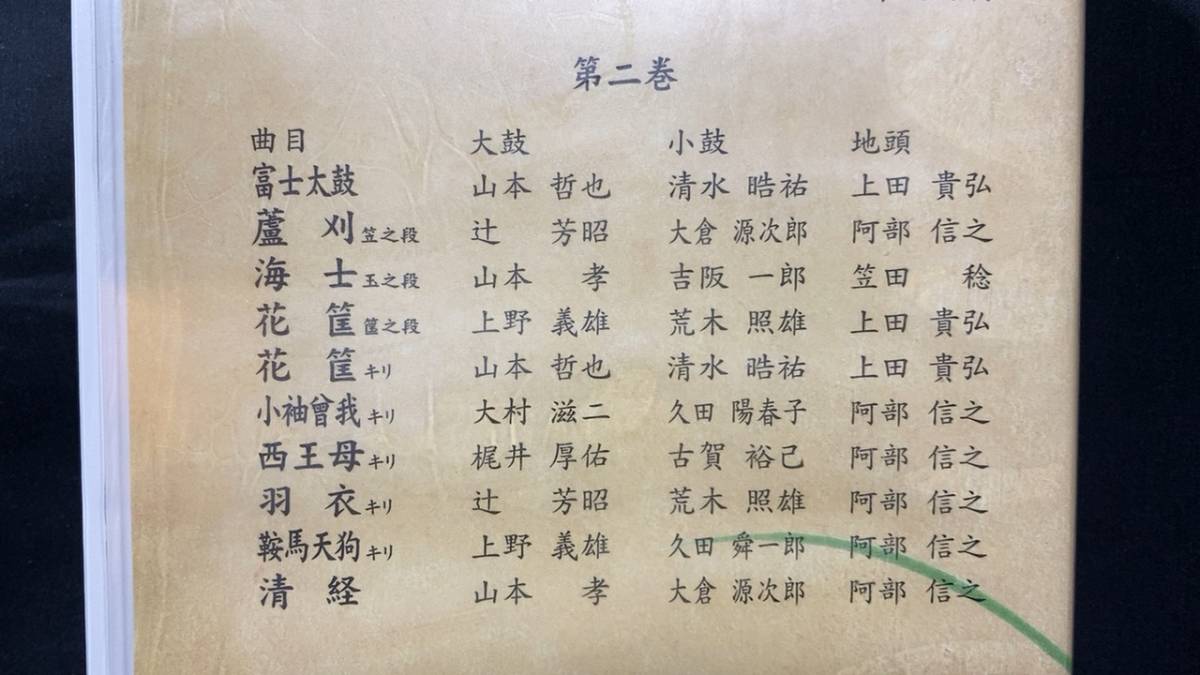 第二巻
曲目 大鼓 小鼓 地頭
富士太鼓 山本 哲也 清水 晧祐 上田 貴弘
蘆 刈 笠之段 辻 芳昭 大倉 源次郎 阿部 信之
海 士 玉之段 山本 孝 吉阪 一郎 笠田 稔
花 筐 筐之段 上野 義雄 荒木 照雄 上田 貴弘
花 筐 キリ 山本 哲也 清水 晧祐 上田 貴弘
小袖曾我 キリ 大村 滋二 久田 陽春子 阿部 信之
西王母 キリ 梶井 厚佑 古賀 裕己 阿部 信之
羽 衣 キリ 辻 芳昭 荒木 照雄 阿部 信之
鞍馬天狗 キリ 上野 義雄 久田 舜一郎 阿部 信之
清 経 山本 孝 大倉 源次郎 阿部 信之